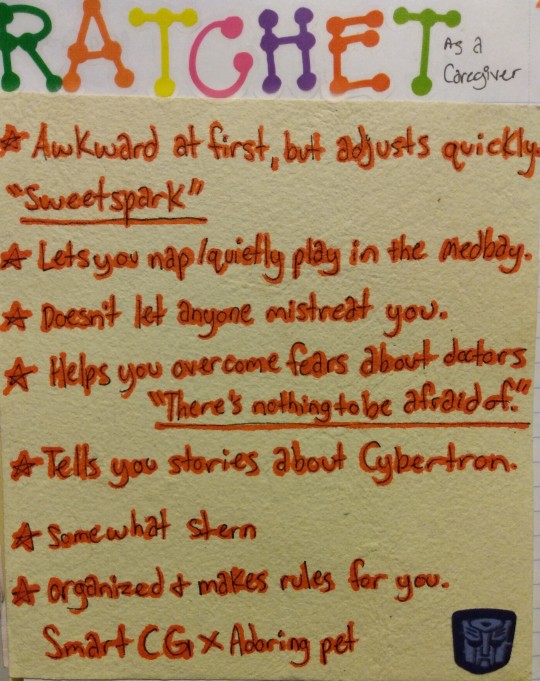 RATCHET
As a
Caregiver
☆ Awkward at first, but adjusts quickly.
"Sweetspark"
☆ Lets you nap/quietly play in the medbay.
☆ Doesn't let anyone mistreat you.
☆ Helps you overcome fears about doctors
"There's nothing to be afraid of."
☆ Tells you stories about Cybertron.
☆ Somewhat stern
☆ organized + makes rules for you.
Smart CG x Adoring pet